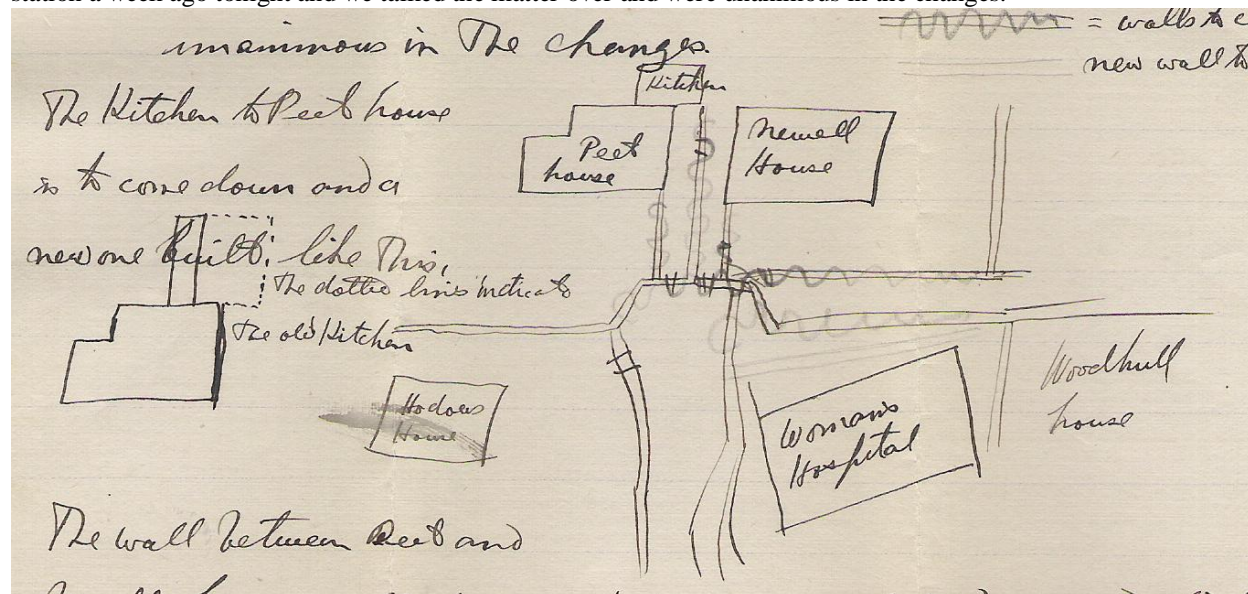 station a week ago tonight and we talked the matter over and were unanimous in the changes.
unanimous in The changes.
= walls to c
new wall to
The Kitchen to Peet house
is to come down and a
new one built. like This,
The dotted lines indicate
The old Kitchen
Kitchen
Peet
house
Newell
House
Hodous
House
Womans
Hospital
Woodhull
house
The wall between Peet and